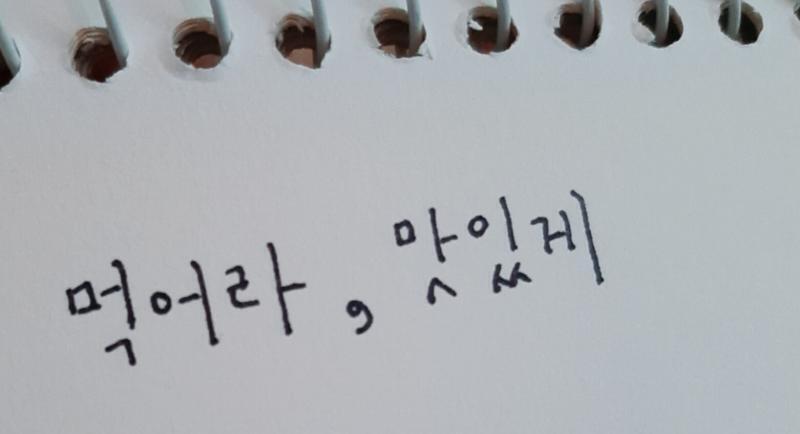 먹어라, 맛있게